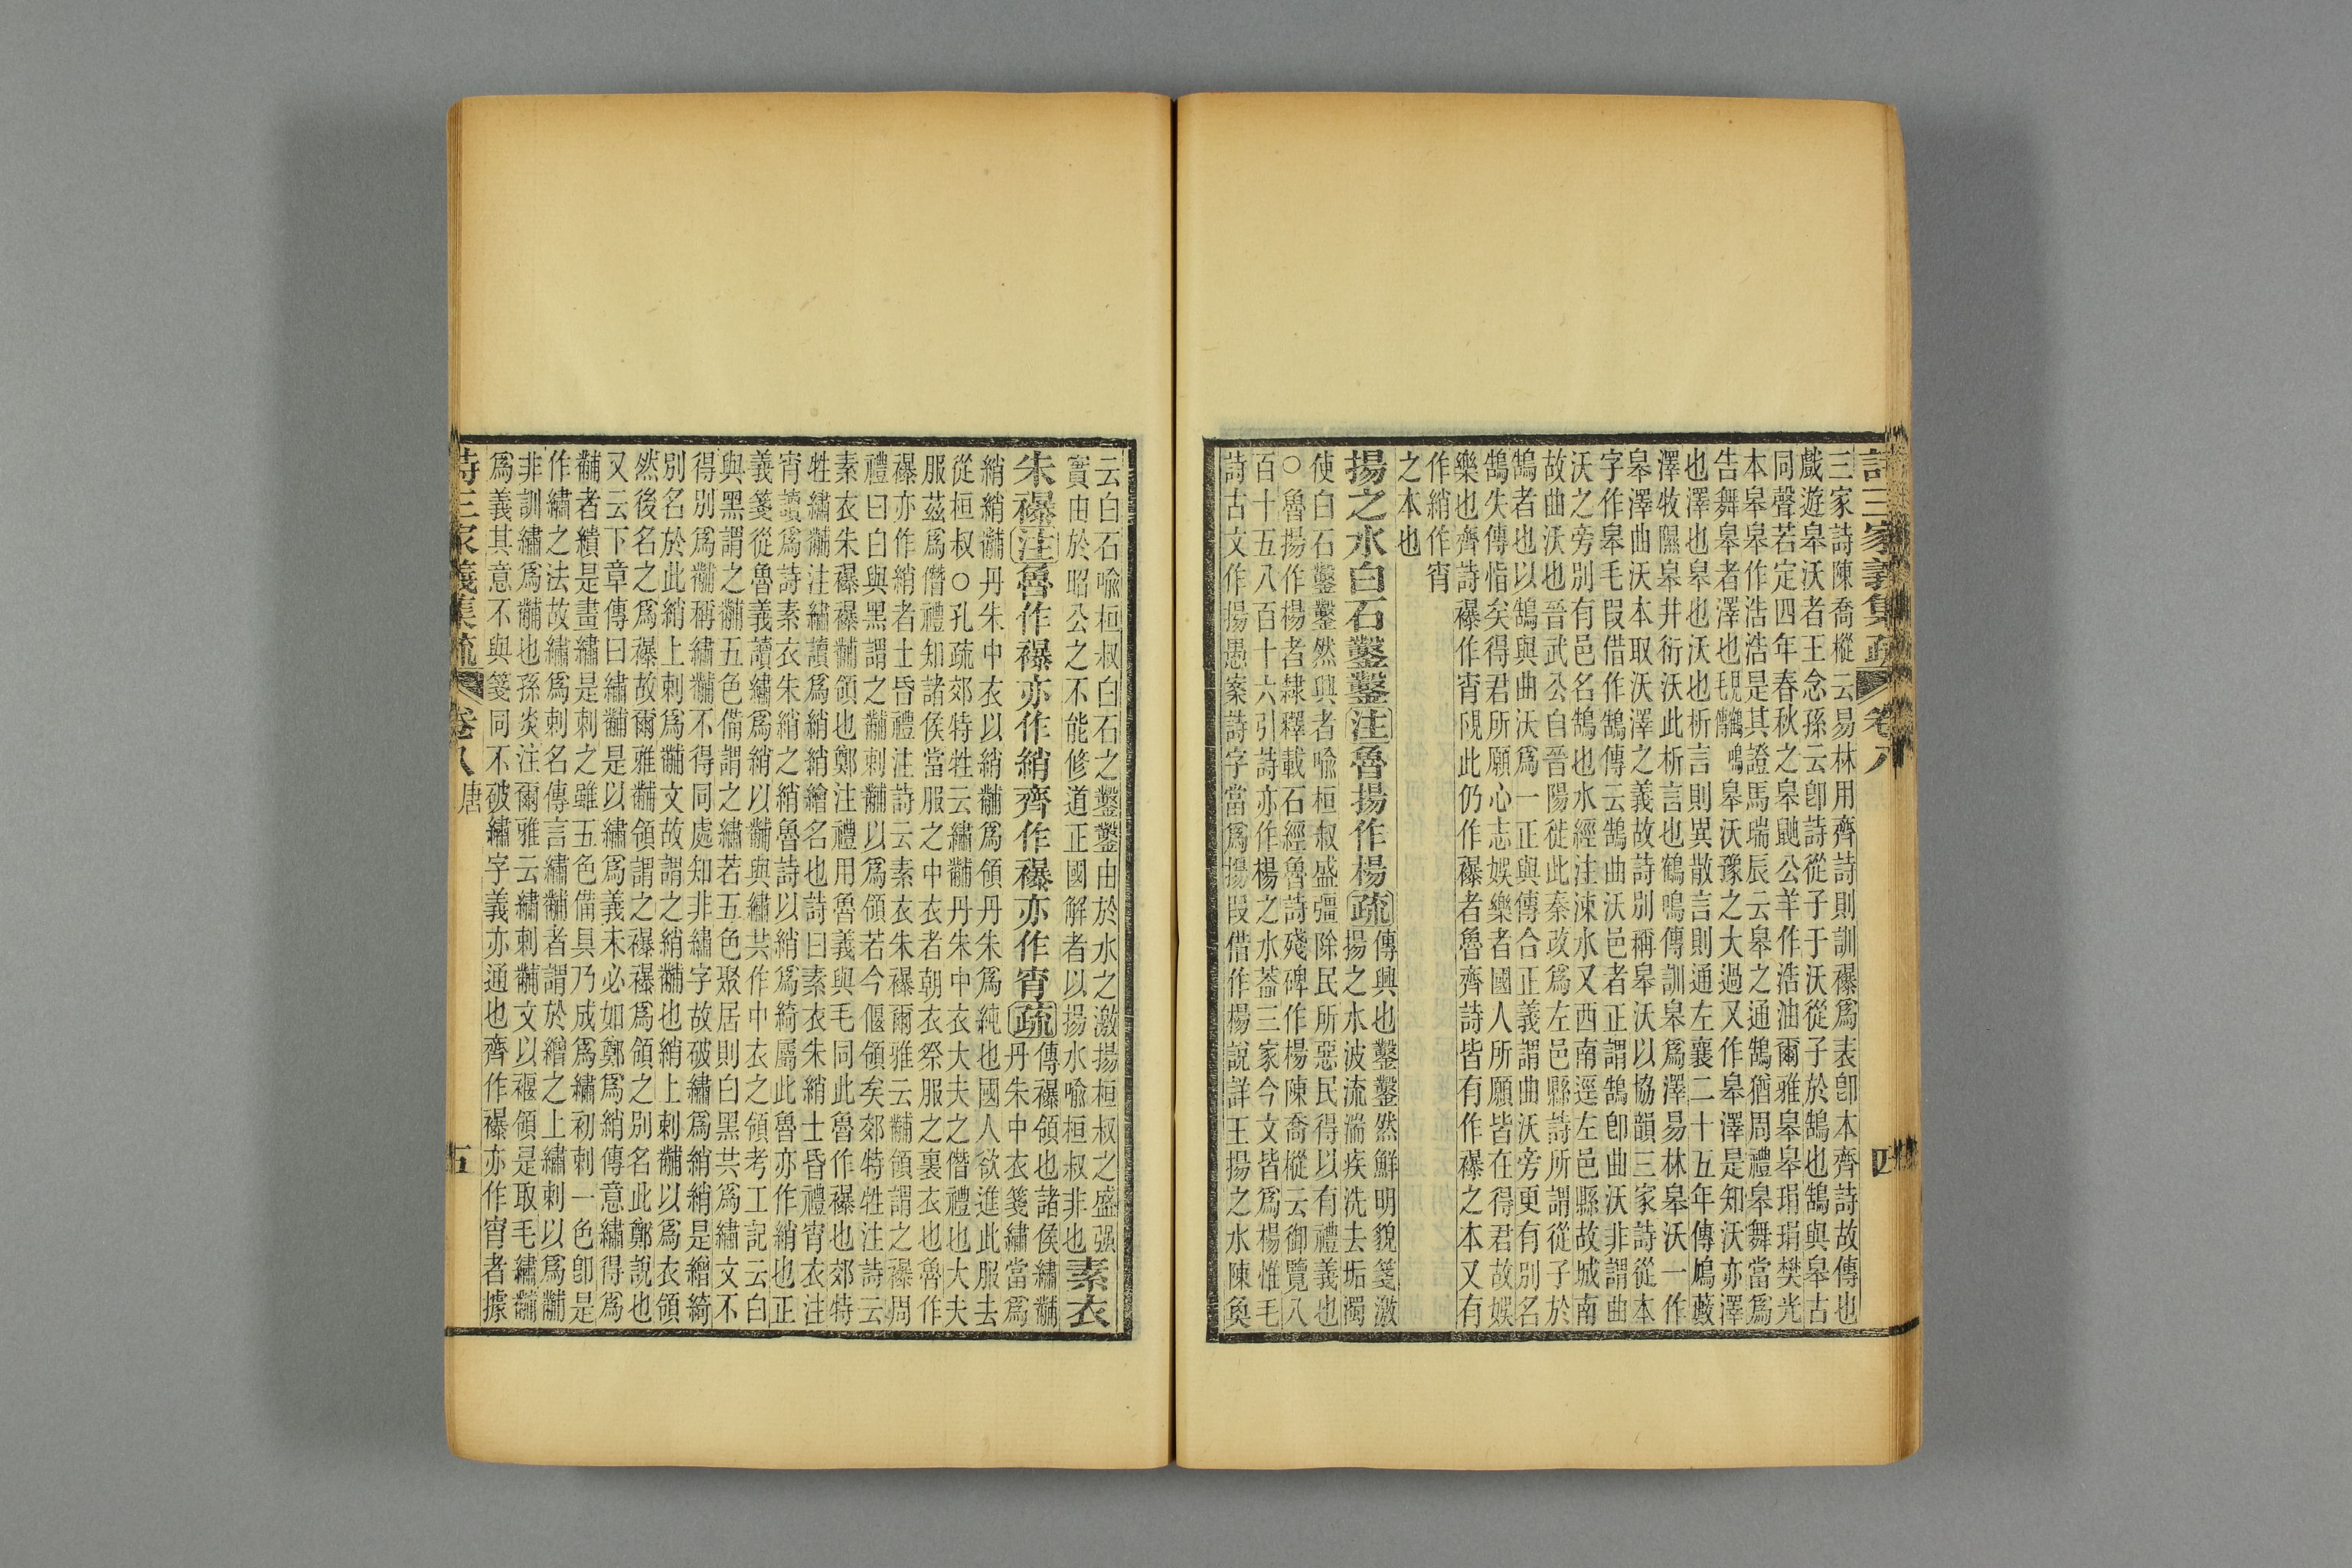 詩三家義集疏 卷八 四
三家詩陳喬樅云易林用齊詩則訓襮爲表卽本齊詩故傳也
戲遊皋沃者王念孫云卽詩從子于沃從子於鵠也鵠與皋古
同聲若定四年春秋之皋鼬公羊作浩油爾雅皋皋琄琄樊光
本皋皋作浩浩是其證馬瑞辰云皋之通鵠猶周禮皋舞當爲
告舞皋者澤也鶂鷁鳴皋沃豫之大過又作皋澤是知沃亦澤
也澤也皋也沃也析言則異散言則通左襄二十五年傳鳩藪
澤牧隰皋井衍沃此析言也鶴鳴傳訓皋爲澤易林皋沃一作
皋澤曲沃本取沃澤之義故詩別稱皋沃以協韻三家詩從本
字作皋毛叚借作鵠傳云鵠曲沃邑者正謂鵠卽曲沃非謂曲
沃之旁別有邑名鵠也水經注涑水又西南逕左邑縣故城南
故曲沃也晉武公自晉陽徙此秦改爲左邑縣詩所謂從子於
鵠者也以鵠與曲沃爲一正與傳合正義謂曲沃旁更有別名
鵠失傳恉矣得君所願心志娛樂者國人所願皆在得君故娛
樂也齊詩襮作宵覛此仍作襮者魯齊詩皆有作襮之本又有
作綃作宵
之本也
揚之水白石鑿鑿注魯揚作楊疏傳興也鑿鑿然鮮明貌箋激
揚之水波流湍疾洗去垢濁
使白石鑿鑿然興者喩桓叔盛彊除民所惡民得以有禮義也
○魯揚作楊者隸釋載石經魯詩殘碑作楊陳喬樅云御覽八
百十五八百十六引詩亦作楊之水葢三家今文皆爲楊惟毛
詩古文作揚愚案詩字當爲揚叚借作楊說詳王揚之水陳奐
云白石喩桓叔白石之鑿鑿由於水之激揚桓叔之盛强
實由於昭公之不能修道正國解者以揚水喩桓叔非也素衣
朱襮注魯作襮亦作綃齊作襮亦作宵疏傳襮領也諸侯繡黼
丹朱中衣箋繡當爲
綃綃黼丹朱中衣以綃黼爲領丹朱爲純也國人欲進此服去
從桓叔○孔疏郊特牲云繡黼丹朱中衣大夫之僭禮也大夫
服茲爲僭禮知諸侯當服之中衣者朝衣祭服之裏衣也魯作
襮亦作綃者士昏禮注詩云素衣朱襮爾雅云黼領謂之襮周
禮曰白與黑謂之黼刺黼以爲領若今偃領矣郊特牲注詩云
素衣朱襮襮黼領也鄭注禮用魯義與毛同此魯作襮也郊特
牲繡黼注繡讀爲綃綃繪名也詩曰素衣朱綃士昏禮宵衣注
宵讀爲詩素衣朱綃之綃魯詩以綃爲綺屬此魯亦作綃也正
義箋從魯義讀繡爲綃以黼與繡共作中衣之領考工記云白
與黑謂之黼五色備謂之繡若五色聚居則白黑共爲繡文不
得別爲黼稱繡黼不得同處知非繡字故破繡爲綃綃是繒綺
別名於此綃上刺爲黼文故謂之綃黼也綃上刺黼以爲衣領
然後名之爲襮故爾雅黼領謂之襮襮爲領之別名此鄭說也
又云下章傳曰繡黼是以繡爲義未必如鄭爲綃傳意繡得爲
黼者繢是畫繡是刺之雖五色備具乃成爲繡初刺一色卽是
作繡之法故繡爲刺名傳言繡黼者謂於繒之上繡刺以爲黼
非訓繡爲黼也孫炎注爾雅云繡刺黼文以褗領是取毛繡黼
爲義其意不與箋同不破繡字義亦通也齊作襮亦作宵者據
詩三家義集疏 卷八 唐 五